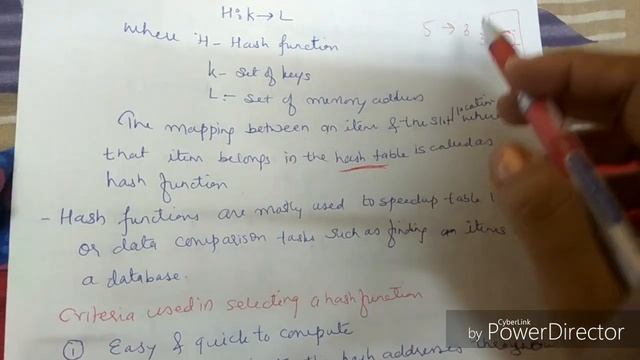 H: K → L
5 → 3
where H - Hash function
K - Set of keys
L :- Set of memory address
The mapping between an item & the slot/location where
that item belongs in the hash table is called as
hash function
- Hash functions are mostly used to speedup table
or data comparison tasks such as finding an items
a database.
Criteria used in selecting a hash function
① Easy & quick to compute
the hash addresses
by CyberLink
PowerDirector